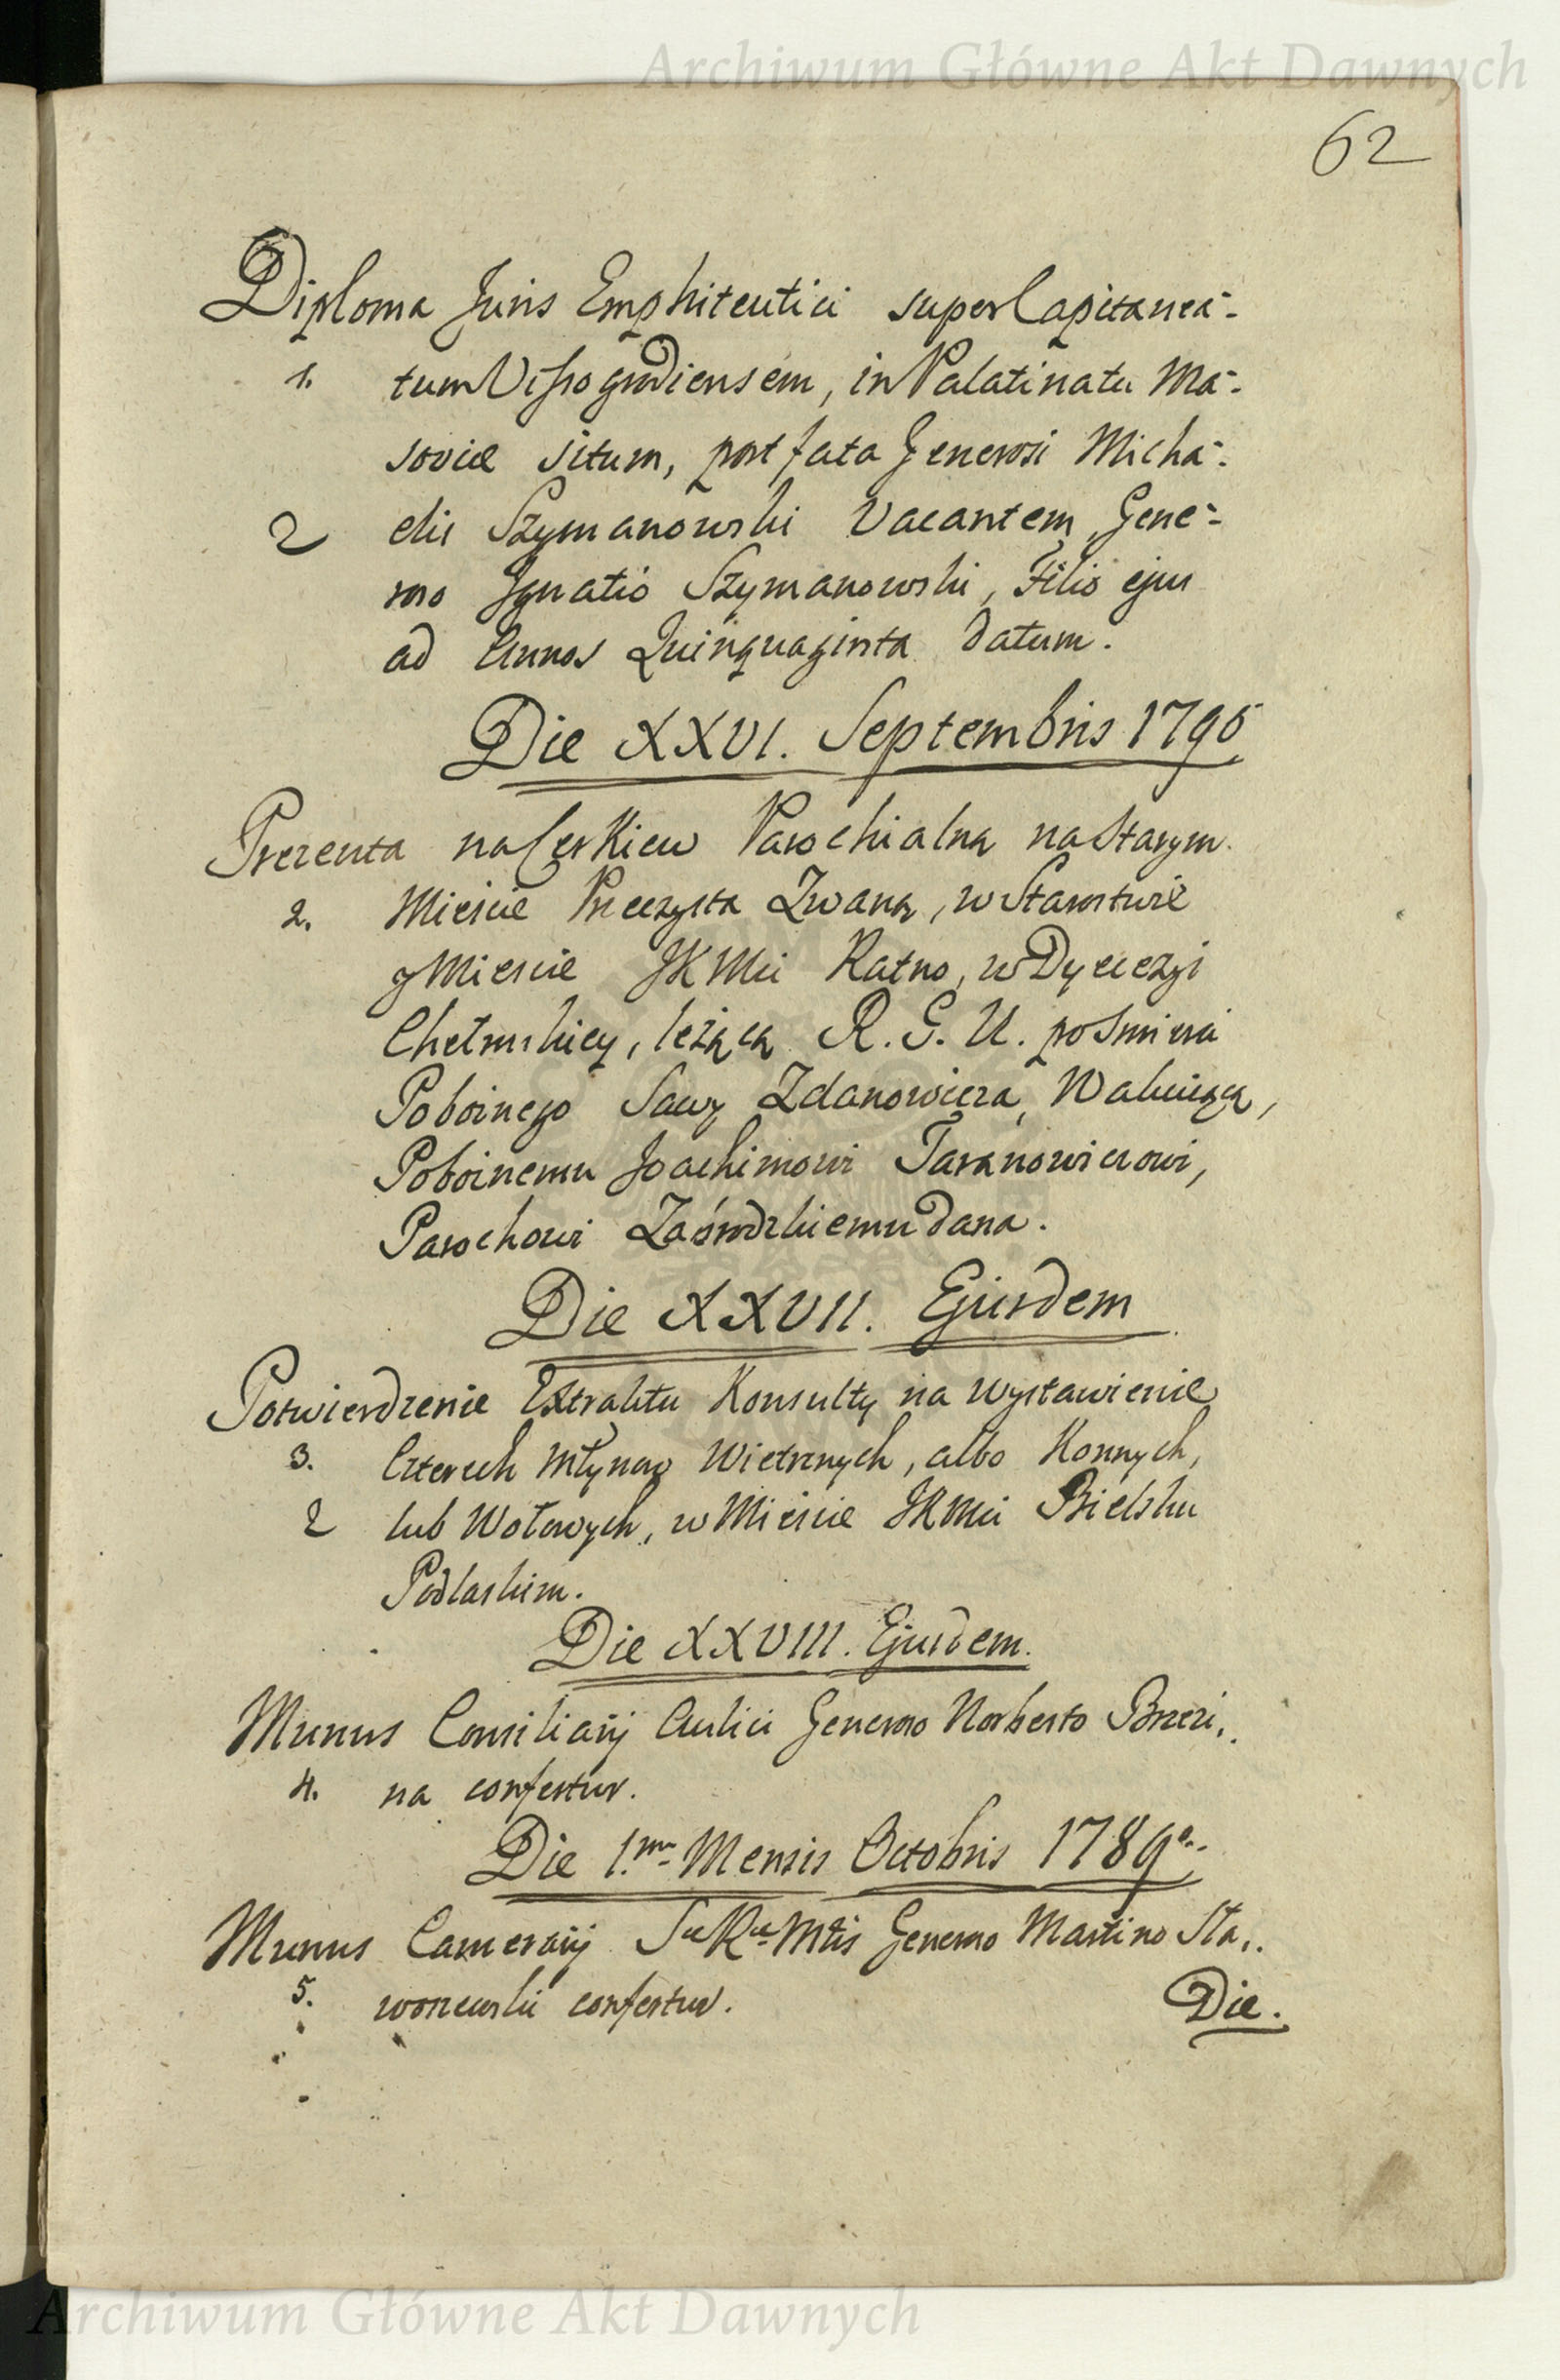 Archiwum Główne Akt Dawnych
62
Diploma Juris Emphiteutici super Capitanea-
1. tum Vissogrodiensem, in Palatinatu Ma-
soviæ situm, post fata Generosi Micha-
2 elis Szymanowski vacantem, Gene-
roso Ignatio Szymanowski, Filio ejus
ad Annos Quinquaginta datum.
Die XXVI. Septembris 1795
Prezenta na Cerkiew Parochialną na Starym
2. Mieście Preczysta Zwaną, w Starostwie
y Mieście JKMci Ratno, w Dyecezyi
Chełmskiey, leżącą R. G. U. po śmierci
Pobożnego Sawy Zdanowicza, Wakuiącą,
Pobożnemu Joachimowi Taranowiczowi,
Parochowi Zaśrodzkiemu dana.
Die XXVII. Ejusdem
Potwierdzenie Extraktu Konsulty na wystawienie
3. Czterech Młynow Wietrznych, albo Konnych,
2 lub Wołowych, w Mieście JKMci Bielsku
Podlaskim.
Die XXVIII. Ejusdem.
Munus Consiliarij Aulici Generoso Norberto Brzezi,,
4. na confertur.
Die 1.ma Mensis Octobris 1789o
Munus Camerarij Sæ Ræ Mtis Generoso Martino Sta,,
5. worzewski confertur.
Die.
Archiwum Główne Akt Dawnych